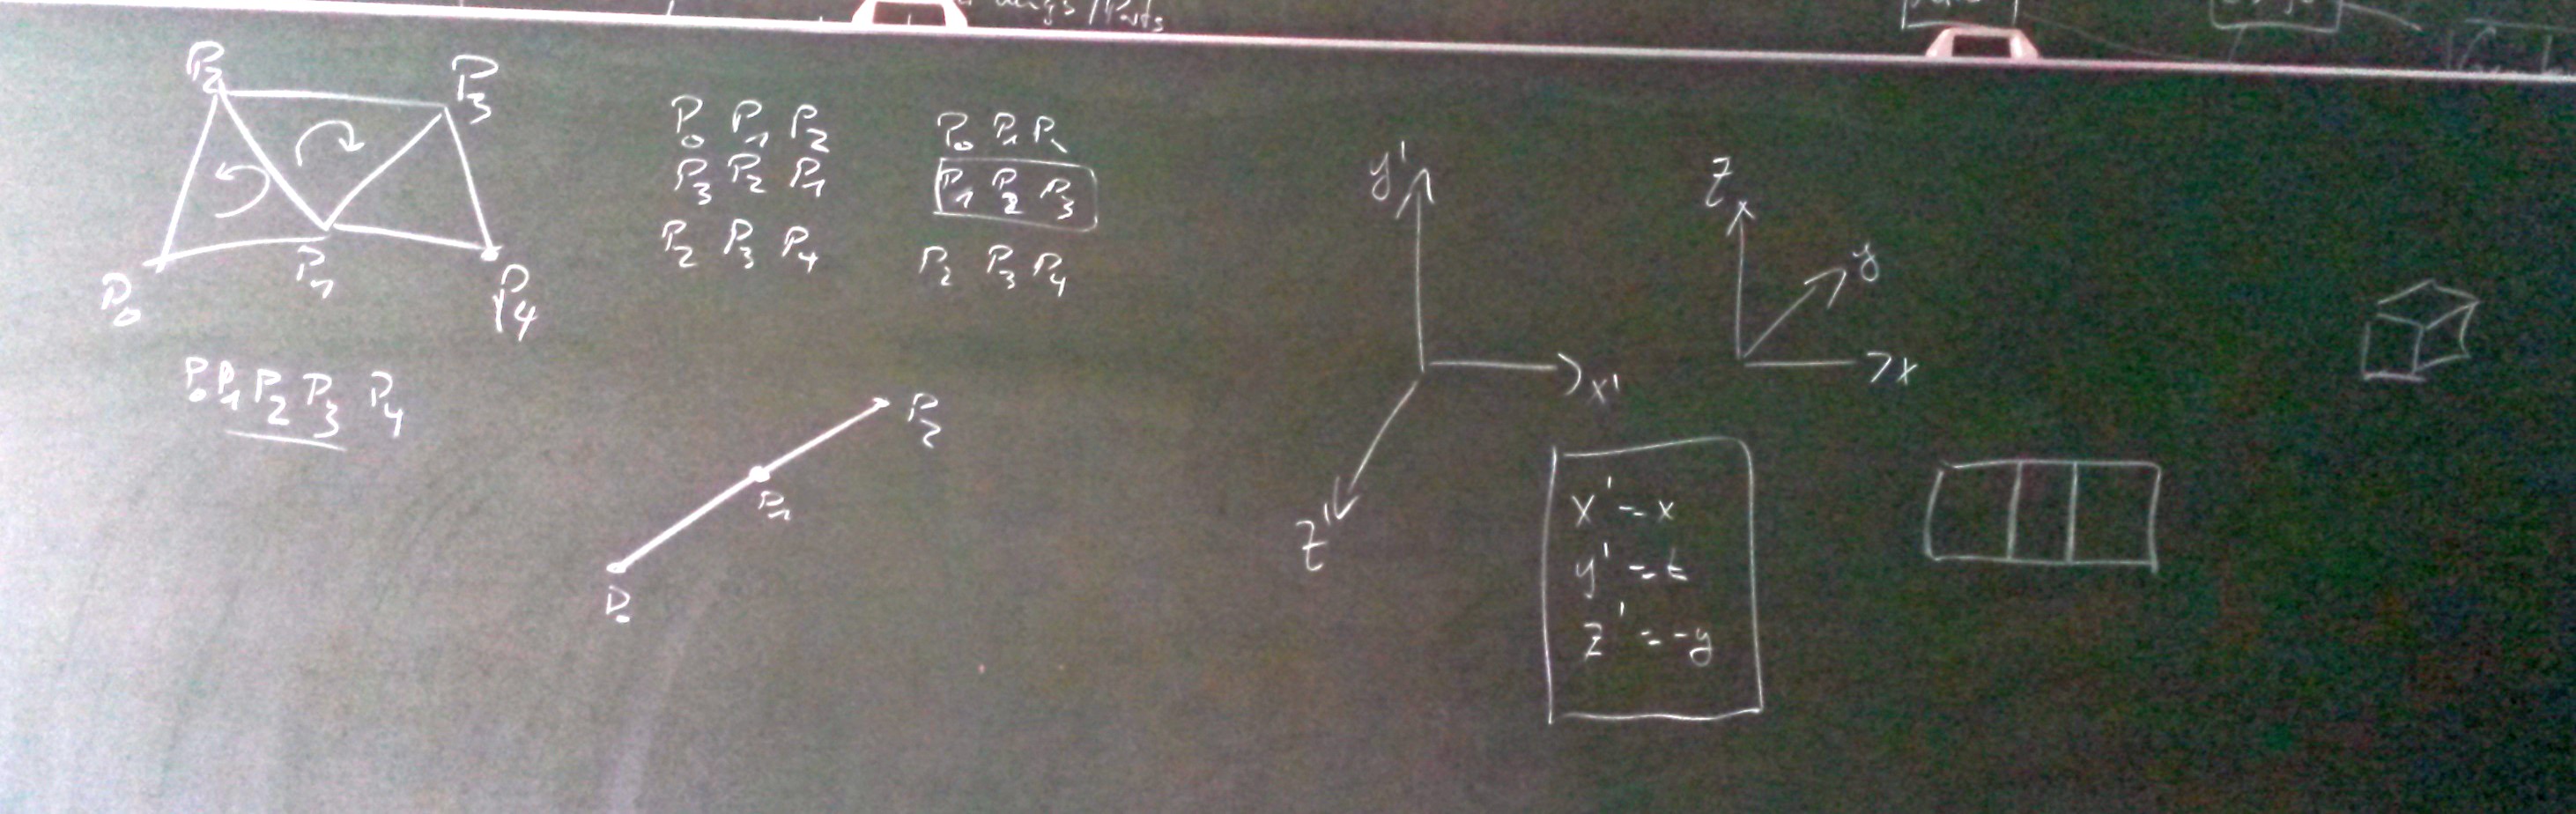 P₂
P₃
P₀
P₁
P₄
P₀ P₁ P₂ P₃ P₄
P₀ P₁ P₂
P₃ P₂ P₁
P₂ P₃ P₄
P₀ P₁ P₂
P₁ P₂ P₃
P₂ P₃ P₄
P₂
P₁
P₀
y'
x'
z'
z
y
x
x' = x
y' = z
z' = -y